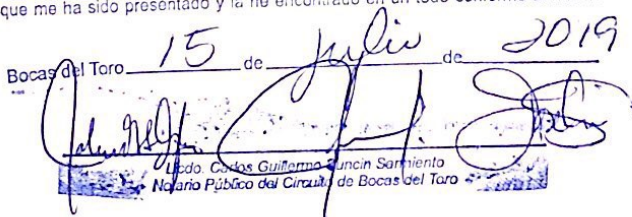 que me ha sido presentado y la he encontrado en un todo conforme
Bocas del Toro 15 de Julio de 2019
Licdo. Carlos Guillermo Puncin Sarmiento
Notario Público del Circuito de Bocas del Toro